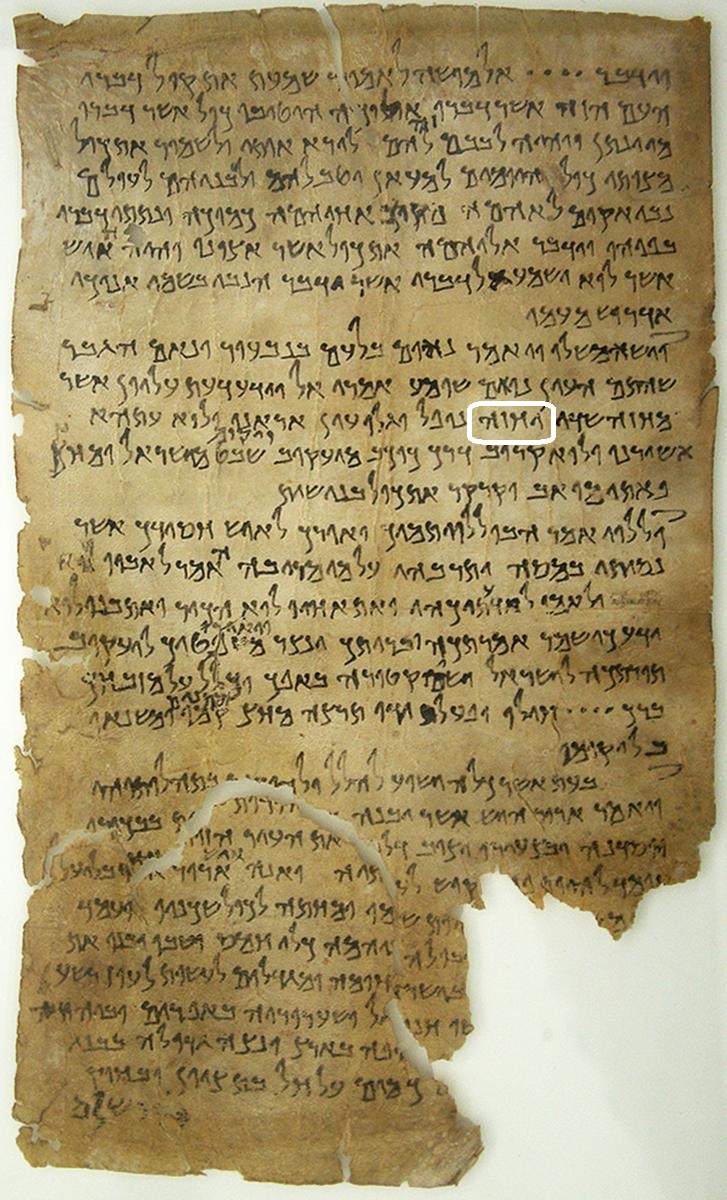 וידבר •••• אל מושה לאמור שמעת את קול דברי
העם הזה אשר דברו אליכה היטיבו כול אשר דברו
מי ינתן ויהיה לבבם זה להם לירא אותי ולשמור את כול
מצותי כול היומים למעאן יטב להם ולבניהם לעולם
נבי אקים לאהמה מקרב אחיהמה כמוכה ונתתי דברי
בפיהו וידבר אליהמה את כול אשר אצונו והיה האיש
אשר לוא ישמע אל דברי אשר ידבר הנבי בשמי אנוכי
אדרוש מעמו
וישא משלו ויאמר נאום בלעם בנבעור ונאם הגבר
שהתם העין נואם שומע אמרי אל וידע דעת עליון אשר
מחזה שדי יחזה נופל וגלו עין אראנו ולוא עתהא
אשורנו ולוא קרוב דרך כוכב מיעקוב ויקום שבט מישראל ומחץ
פאתי מואב וקרקר את כול בני שית
וללוי אמר הבו ללוי תמיך ואורך לאיש חסידך אשר
נסיתו במסה ותרבהו על מי מריבה האמר לאביו לוא
ולאמו לוא ידעתיכהו ואת אחיו לוא הכיר ואת בנו לוא
ידע כי שמר אמרתכה ובריתך ינצר ויאירו משפטיך ליעקוב
תורתכה לישראל ישים קטורה באפך וכליל על מזבחך
ברך •••• חילו ופעל ידו תרצה מחץ מתנים קמו ומשנאו
בל יקומו
בעת אשר כלה ישוע להלל ולהודות בתהלותיהו
ויאמר ארור היש אשר יבנה הזות בבכורו
ייסדנה ובצעירו יציב את העיר הזות
ואנה ארור בליעל
להיות יקוש לעמו ומחתה לכול שכניו ועמד
להיות המה כלי חמס ושבו ובנו את
חומה ומגדלים לעשות לעוז רשע
ושערוריה באפרים וביהודה
פה בארץ ונצה גדולה בבני
כמים על חל בת ציון ובחוק
ירושלם